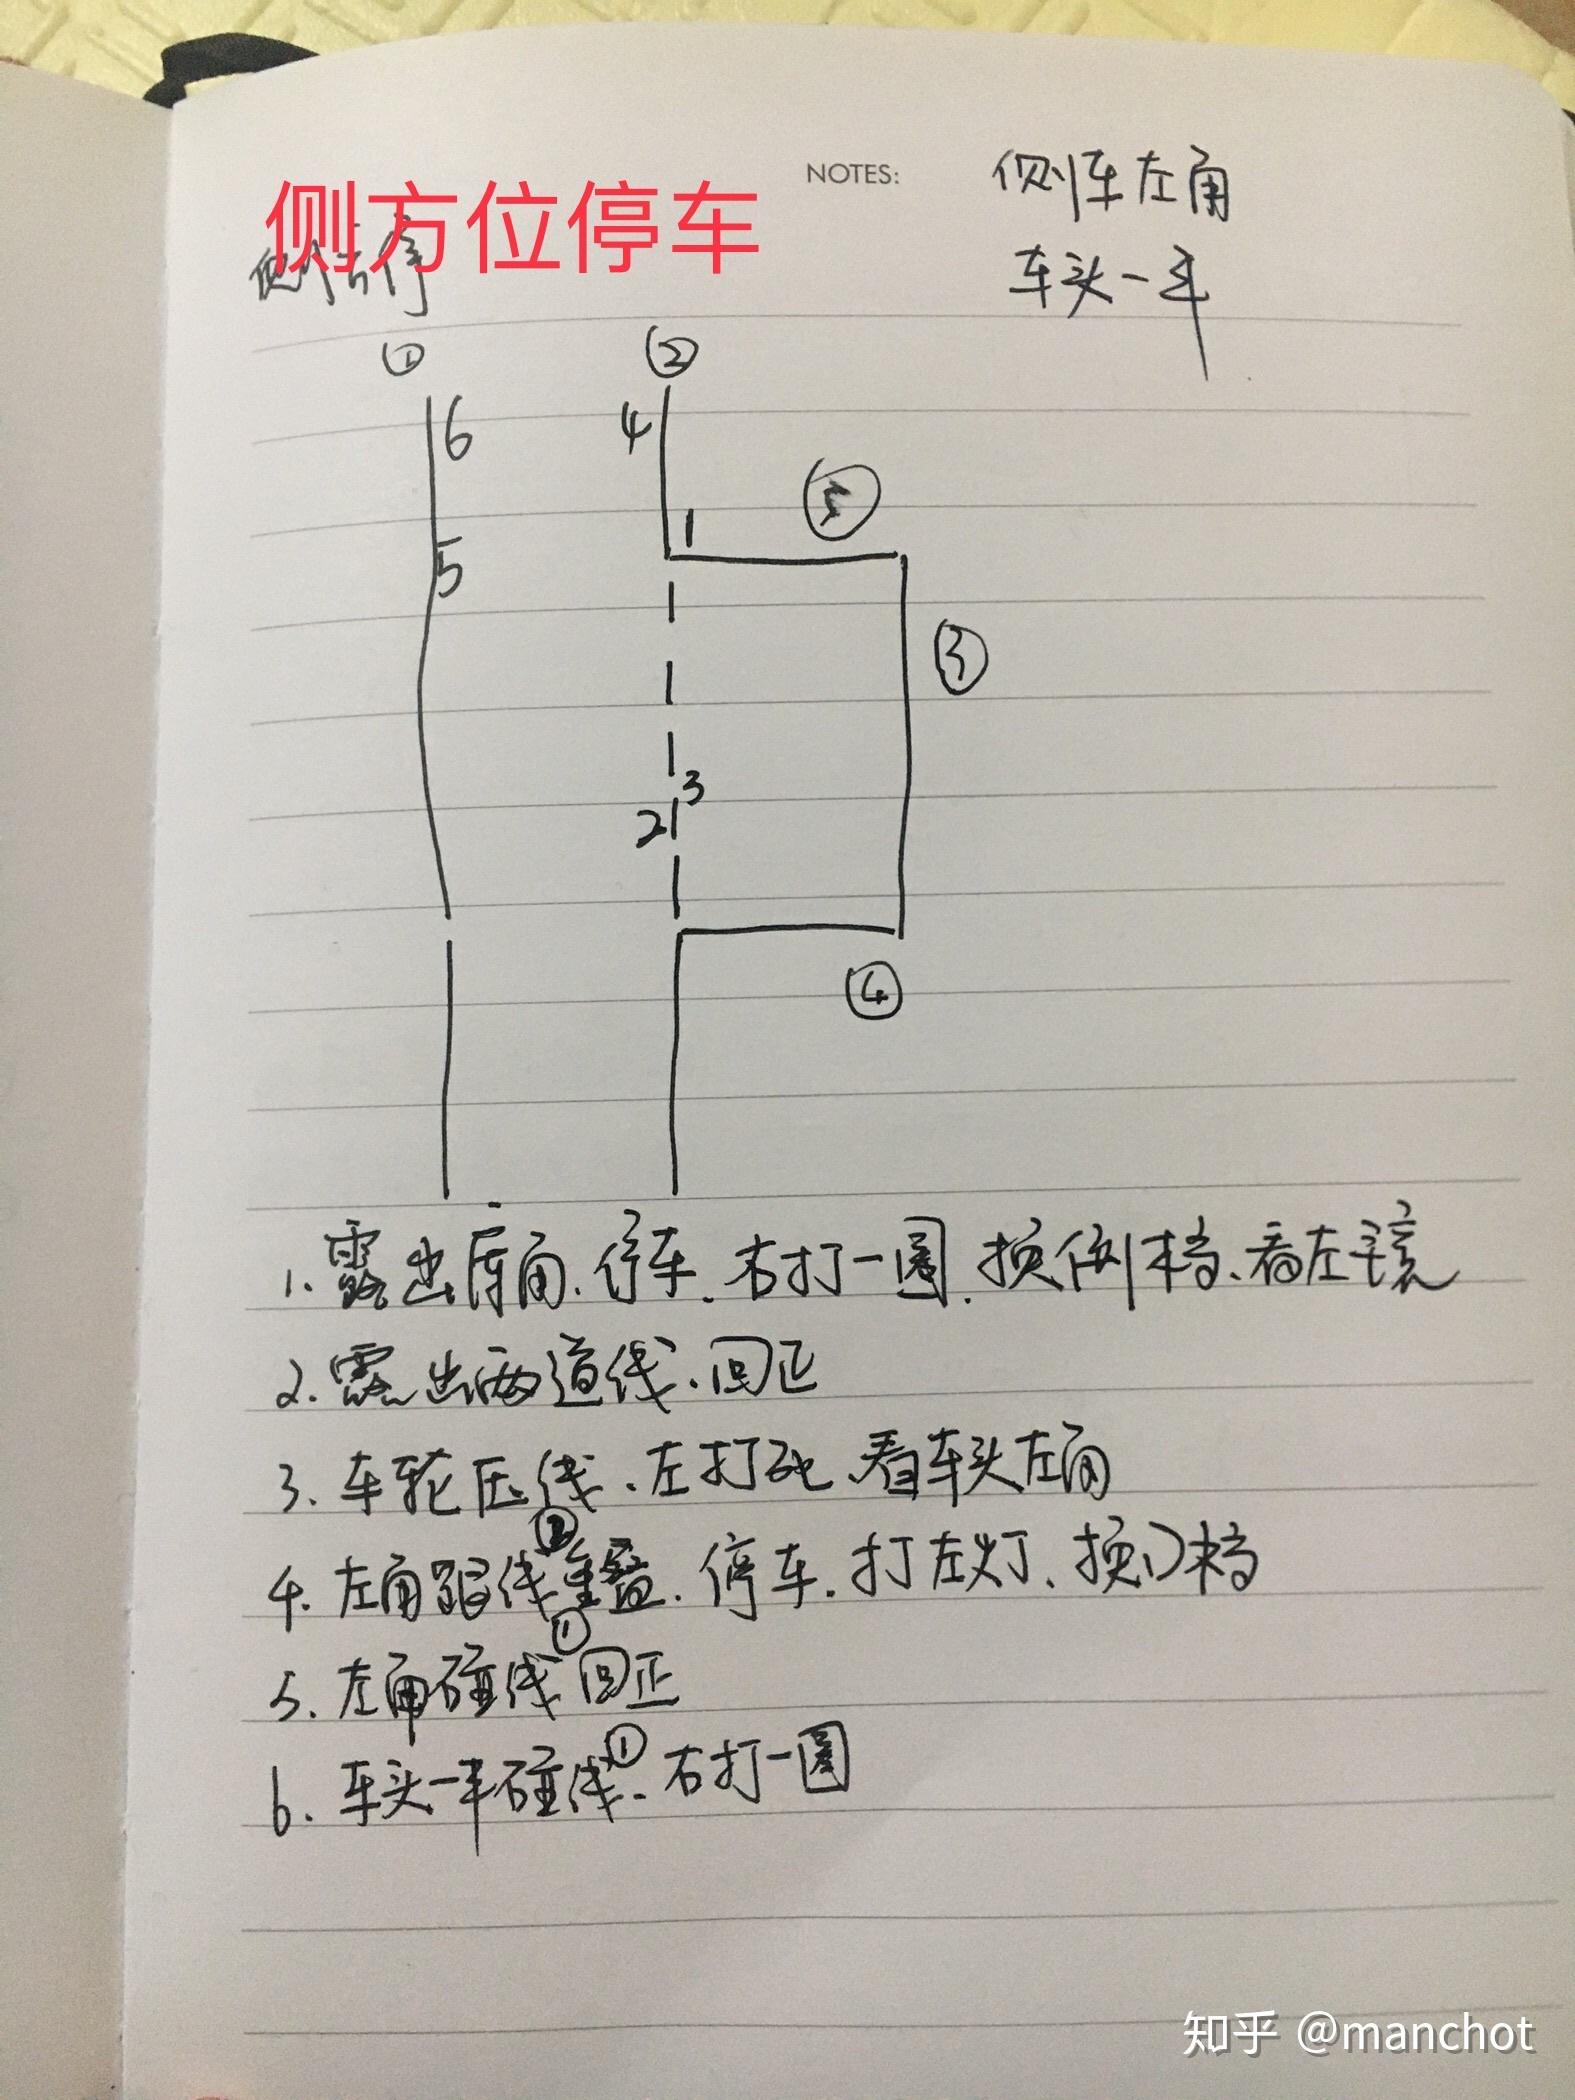 侧方位停车
NOTES:
侧车左角
侧方停
车头一半
① ②
6 4
⑤
1
5
③
3
2
④
1. 露出库角、停车、右打一圈、换倒档、看左镜
2. 露出两道线、回正
3. 车轮压线、左打死、看车头左角
4. 左角跟线②重叠、停车、打左灯、换1档
5. 左角碰线①回正
6. 车头一半碰线①、右打一圈
知乎 @manchot